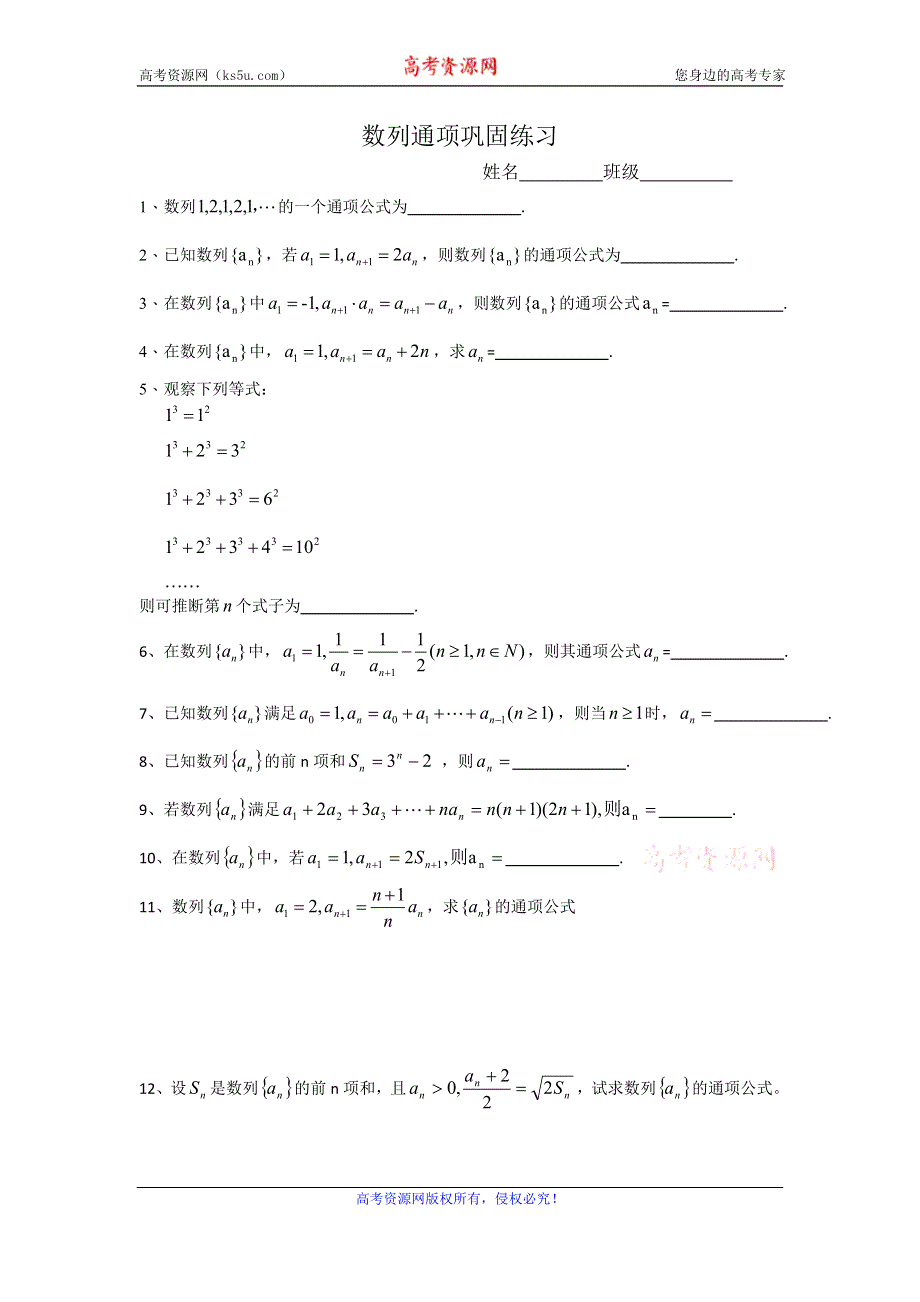 高考资源网（ks5u.com） 高考资源网 您身边的高考专家
数列通项巩固练习
姓名________班级_________
1、数列1,2,1,2,1,⋯的一个通项公式为____________.
2、已知数列{aₙ}，若a₁=1,aₙ₊₁=2aₙ，则数列{aₙ}的通项公式为____________.
3、在数列{aₙ}中a₁=-1,aₙ₊₁·aₙ=aₙ₊₁-aₙ，则数列{aₙ}的通项公式aₙ=____________.
4、在数列{aₙ}中，a₁=1,aₙ₊₁=aₙ+2n，求aₙ=____________.
5、观察下列等式：
1³=1²
1³+2³=3²
1³+2³+3³=6²
1³+2³+3³+4³=10²
……
则可推断第n个式子为____________.
6、在数列{aₙ}中，a₁=1,1/aₙ=1/aₙ₊₁-1/2(n≥1,n∈N)，则其通项公式aₙ=____________.
7、已知数列{aₙ}满足a₀=1,aₙ=a₀+a₁+⋯+aₙ₋₁(n≥1)，则当n≥1时，aₙ=____________.
8、已知数列{aₙ}的前n项和Sₙ=3ⁿ-2 ，则aₙ=____________.
9、若数列{aₙ}满足a₁+2a₂+3a₃+⋯+naₙ=n(n+1)(2n+1),则aₙ=________.
10、在数列{aₙ}中，若a₁=1,aₙ₊₁=2Sₙ₊₁,则aₙ=____________. 高考资源网
11、数列{aₙ}中，a₁=2,aₙ₊₁=(n+1)/n aₙ，求{aₙ}的通项公式
12、设Sₙ是数列{aₙ}的前n项和，且aₙ>0,(aₙ+2)/2=√(2Sₙ)，试求数列{aₙ}的通项公式。
高考资源网版权所有，侵权必究！